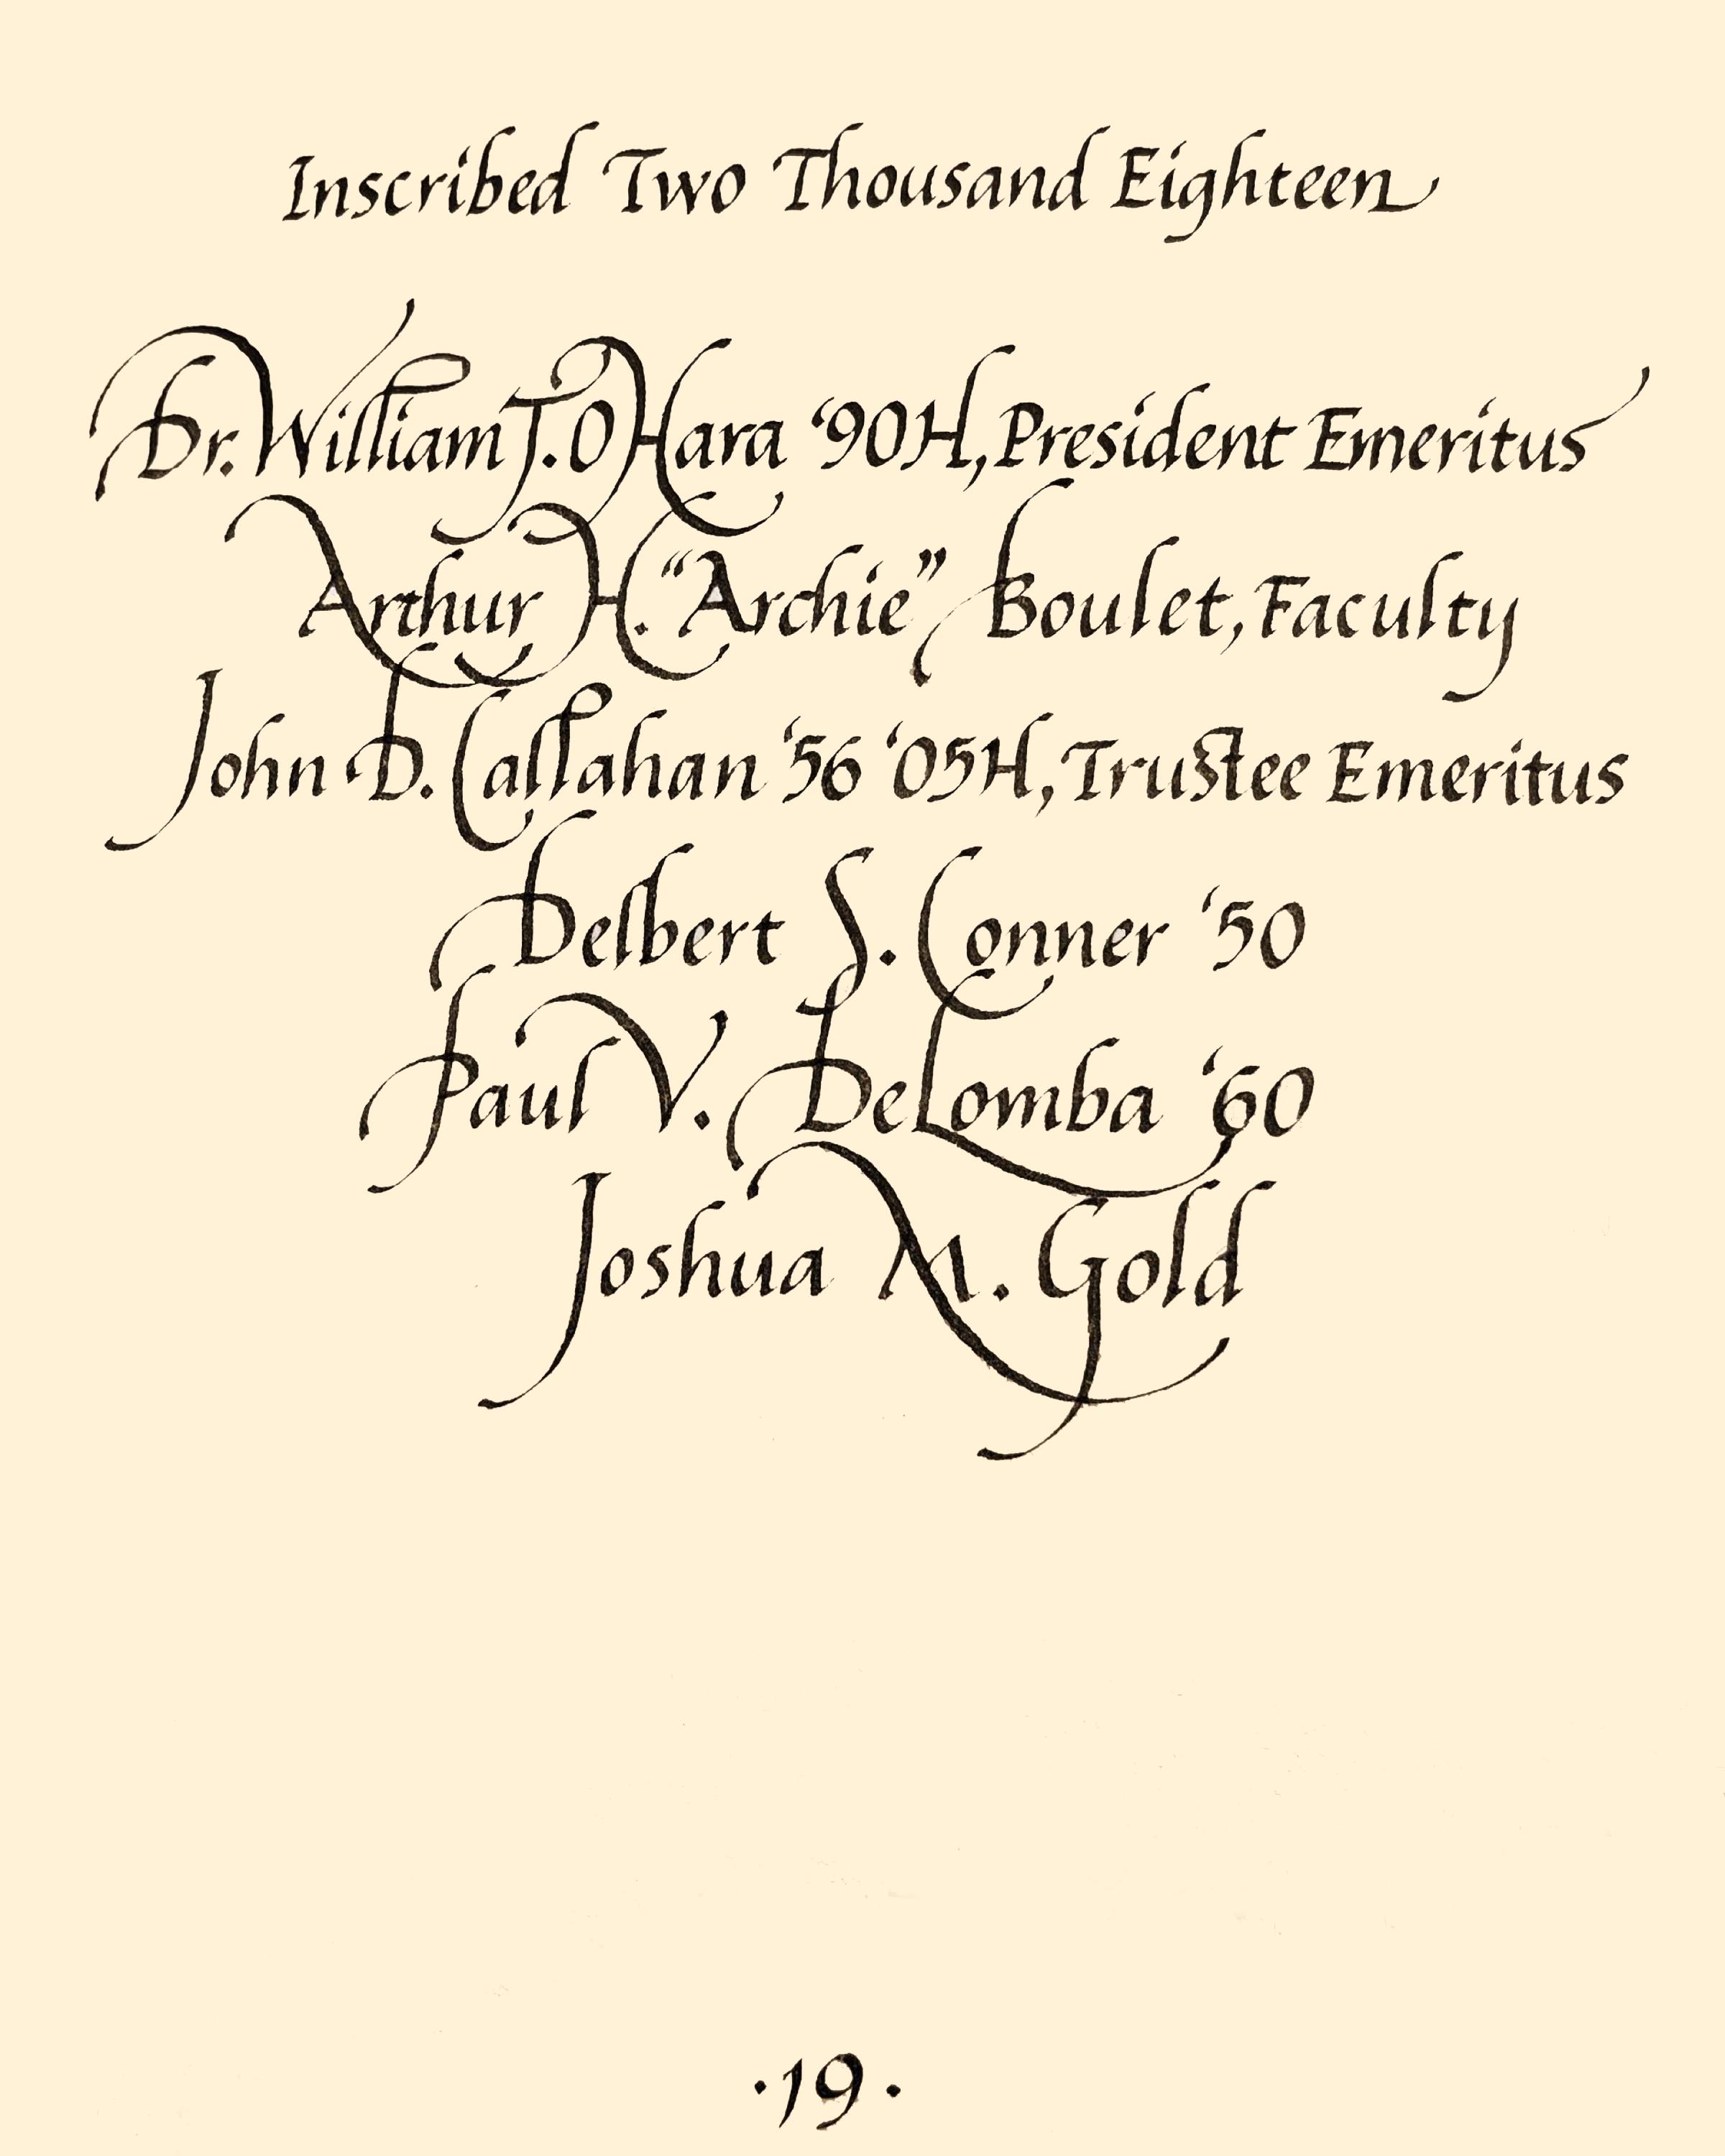 Inscribed Two Thousand Eighteen
Dr. William T. O'Hara ‘90H, President Emeritus
Arthur H. “Archie” Boulet, Faculty
John D. Callahan ‘56 ‘05H, Trustee Emeritus
Delbert S. Conner ‘50
Paul V. DeLomba ‘60
Joshua M. Gold
·19·